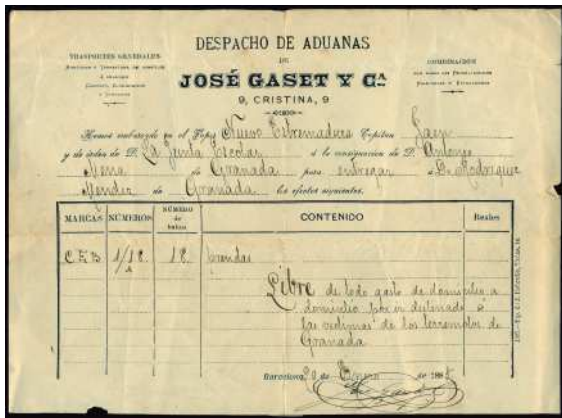 DESPACHO DE ADUANAS
DE
JOSÉ GASET Y Cª
9, CRISTINA, 9
TRASPORTES GENERALES
COMBINACION
Hemos embarcado en el Vapor Nuevo Extremadura Capitan
y de orden de D. La Junta Escolar á la consignacion de D. Antonio
Mena de Granada para entregar á D. Rodriguez
Mendez de Granada los efectos siguientes.
MARCAS NÚMEROS NÚMERO de bultos CONTENIDO Reales
C E B 1/18 18 prendas
Libre de todo gasto de domicilio a
domicilio por ir destinado á
las victimas de los terremotos de
Granada
Barcelona 20 de Enero de 1885